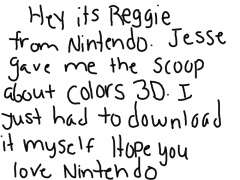 Hey its Reggie
from Nintendo. Jesse
gave me the scoop
about Colors 3D. I
just had to download
it myself Hope you
love Nintendo